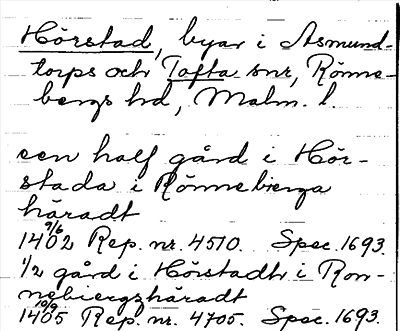 Hörstad, byar i Asmund-
torps och Tofta snr, Rönne-
bergs hd, Malm. l.
een half gård i Hör-
stada i Rönnebierga
häradt
9/6
1402 Rep. nr. 4510. Spec. 1693.
1/2 gård i Hörstadh i Ron-
nebiergshäradt
10/9
1405 Rep. nr. 4705. Spec. 1693.